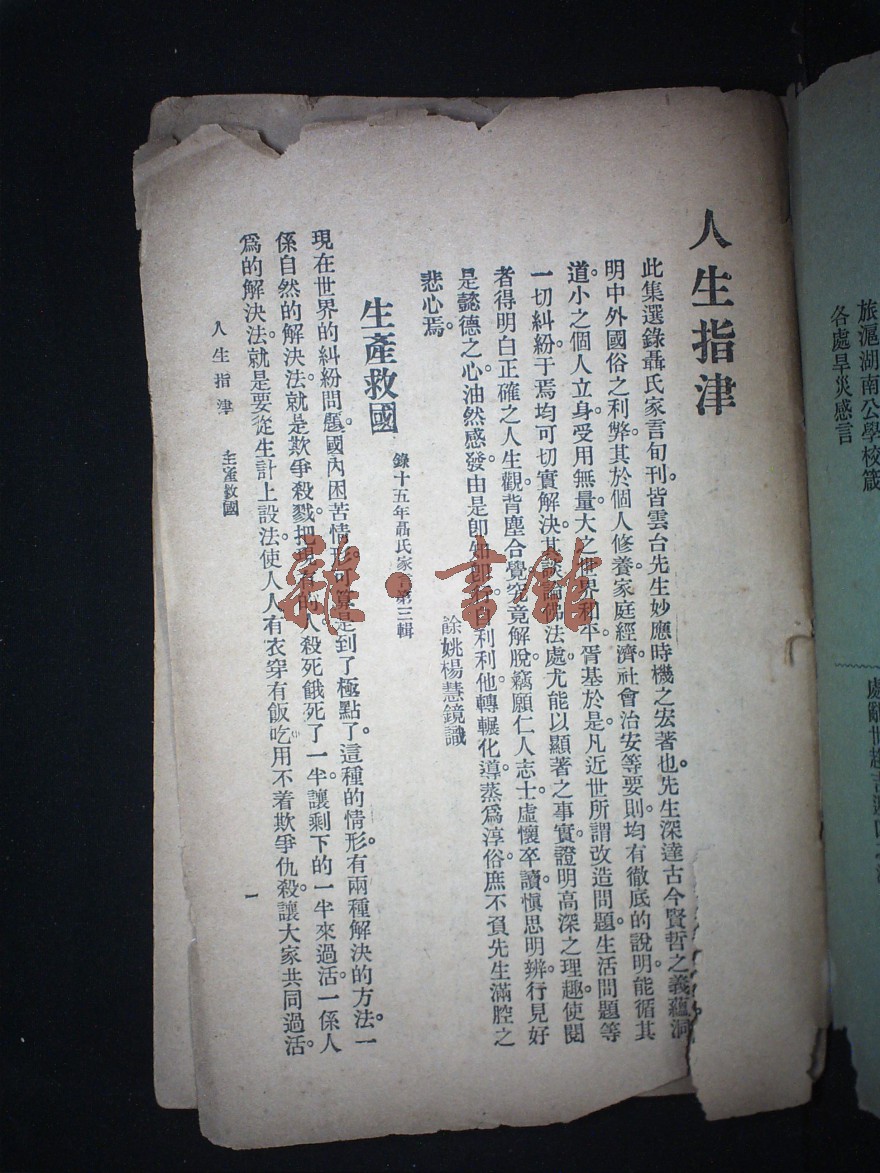 人生指津
此集選錄聶氏家言旬刊。皆雲台先生妙應時機之宏著也。先生深達古今賢哲之義蘊。洞
明中外國俗之利弊。其於個人修養。家庭經濟。社會治安等要則。均有徹底的說明。能循其
道。小之個人立身。受用無量。大之世界和平。胥基於是。凡近世所謂改造問題。生活問題等
一切糾紛。于焉均可切實解決。其談論佛法處。尤能以顯著之事實。證明高深之理趣。使閱
者得明白正確之人生觀。背塵合覺。究竟解脫。竊願仁人志士。虛懷卒讀。愼思明辨。行見好
是懿德之心。油然感發。由是卽知卽行。自利利他。轉輾化導。蒸爲淳俗。庶不負先生滿腔之
悲心焉。
餘姚楊慧鏡識
生產救國
錄十五年聶氏家言第三輯
現在世界的糾紛問題。國內困苦情形。可算是到了極點了。這種的情形。有兩種解決的方法。一
係自然的解決法。就是欺爭殺戮。把現有的人。殺死餓死了一半。讓剩下的一半來過活。一係人
爲的解決法。就是要從生計上設法。使人人有衣穿有飯吃。用不着欺爭仇殺。讓大家共同過活。
人生指津 生產救國
一
旅滬湖南公學校箴
各處旱災感言
雜·書館